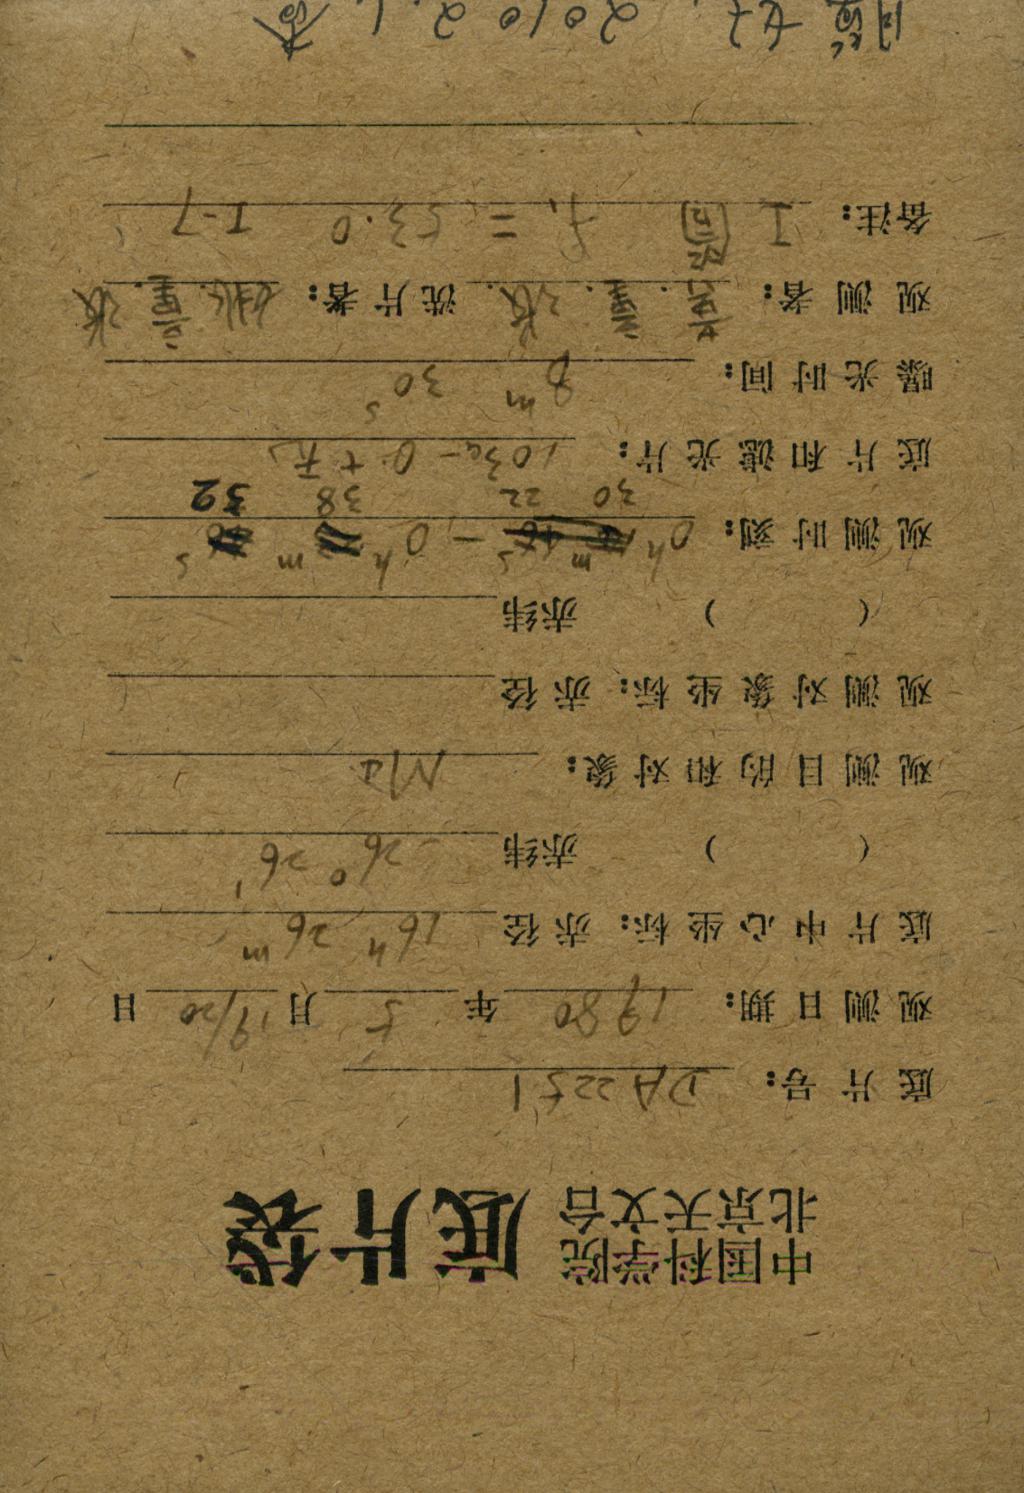 中国科学院
北京天文台 底片袋
底片号: DA2251
观测日期: 1980 年 5 月 19/20 日
底片中心坐标: 赤径 16h 26m
( ) 赤纬 -26° 26'
观测目的和对象: M4
观测对象坐标: 赤径
( ) 赤纬
观测时刻: 0h m s - 0h m s
30 22 38 32
底片和滤光片: 103a-O + 无
曝光时间: 8m 30s
观测者: 黄. 童. 张. 洗片者: 姚. 童. 张
备注: I f = 53.0 I-7
2010.2.